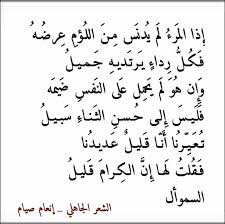 إِذَا المَرْءُ لَمْ يُدْنَسْ مِنَ اللُّؤْمِ عِرْضُهُ
فَكُلُّ رِدَاءٍ يَرْتَدِيهِ جَمِيلُ
وَإِنْ هُوَ لَمْ يَحْمِلْ عَلَى النَّفْسِ ضَيْمَهَا
فَلَيْسَ إِلَى حُسْنِ الثَّنَاءِ سَبِيلُ
تُعَيِّرُنَا أَنَّا قَلِيلٌ عَدِيدُنَا
فَقُلْتُ لَهَا إِنَّ الكِرَامَ قَلِيلُ
السموأل
الشعر الجاهلي _ إنعام صيام